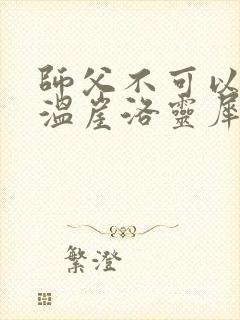 師父不可以
溫崖洛靈犀
繁澄